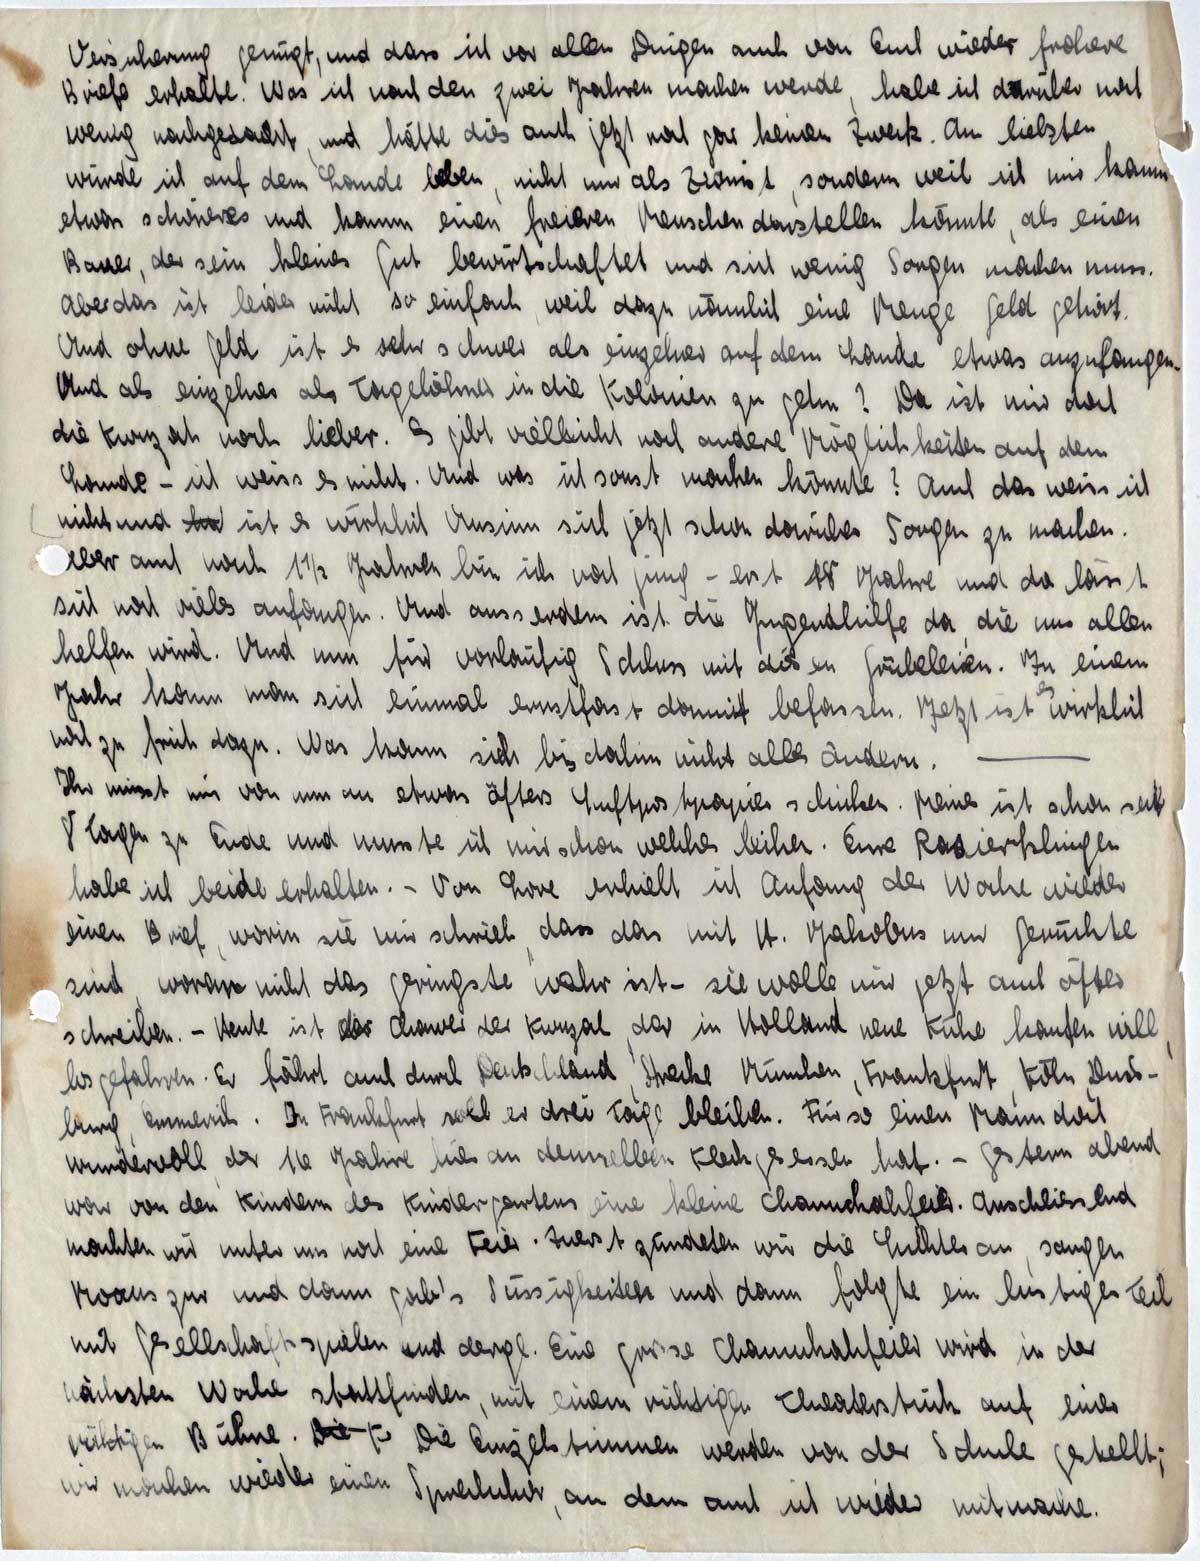 Versicherung genügt, und dass ich vor allen Dingen auch von Euch wieder frohere
Briefe erhalte. Was ich nach den zwei Jahren machen werde, habe ich darüber noch
wenig nachgedacht und hätte dies auch jetzt noch gar keinen Zweck. Am liebsten
würde ich auf dem Lande leben, nicht nur als Zionist, sondern weil ich mir kaum
etwas schöneres und kaum einen freieren Menschen darstellen könnte, als einen
Bauer, der sein kleines Gut bewirtschaftet und sich wenig Sorgen machen muss.
Aber das ist leider nicht so einfach, weil dazu nämlich eine Menge Geld gehört.
Und ohne Geld ist es sehr schwer als einzelner auf dem Lande etwas anzufangen.
Und als einzelner als Tagelöhner in die Kolonien zu gehn? Da ist mir doch
die Kwuzah noch lieber. Es gibt vielleicht noch andere Möglichkeiten auf dem
Lande – ich weiss es nicht. Und was ich sonst machen könnte? Auch das weiss ich
nicht und ist es wirklich Unsinn sich jetzt schon darüber Sorgen zu machen.
Aber auch nach 1½ Jahren bin ich noch jung – erst 18 Jahre und da lässt
sich noch vieles anfangen. Und ausserdem ist die Jugendhilfe da, die uns allen
helfen wird. Und nun für vorläufig Schluss mit diesen Grübeleien. In einem
Jahr kann man sich einmal ernsthaft damit befassen. Jetzt ist es wirklich
noch zu früh dazu. Was kann sich bis dahin nicht alles ändern. —
Ihr müsst mir von nun an etwas öfters Luftpostpapier schicken. Meines ist schon seit
8 Tagen zu Ende und musste ich mir schon welches leihen. Eure Rasierklingen
habe ich beide erhalten. – Von Lore erhielt ich Anfang der Woche wieder
einen Brief, worin sie mir schrieb, dass das mit H. Jakobus nur Gerüchte
sind, woran nicht das geringste wahr ist – sie wolle mir jetzt auch öfter
schreiben. – Heute ist der Chawer der Kwuzah, der in Holland neue Kühe kaufen will,
losgefahren. Er fährt auch durch Deutschland, Strecke München, Frankfurt, Köln Duis-
burg, Emmerich. In Frankfurt soll er drei Tage bleiben. Für so einen Mann doch
wundervoll, der 16 Jahre hier an demselben Fleck gesessen hat. – Gestern abend
war von den Kindern des Kindergartens eine kleine Channukahfeier. Anschliessend
machten wir unter uns noch eine Feier. Zuerst zündeten wir die Lichter an, sangen
Moaus zur und dann gab's Süssigkeiten und dann folgte ein lustiger Teil
mit Gesellschaftsspielen und dergl. Eine grosse Channukahfeier wird in der
nächsten Woche stattfinden, mit einem richtigen Theaterstück auf einer
richtigen Bühne. Die Einzelstimmen werden von der Schule gestellt;
wir machen wieder einen Sprechchor, an dem auch ich wieder mitmache.